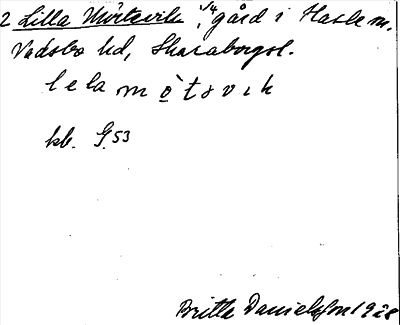 2 Lilla Mörtevik, 1/4 gård i Hasle sn.
Vadsbo hd, Skaraborgsl.
lela mòtsvik
kb. G.53
Britta Danielsson 1928